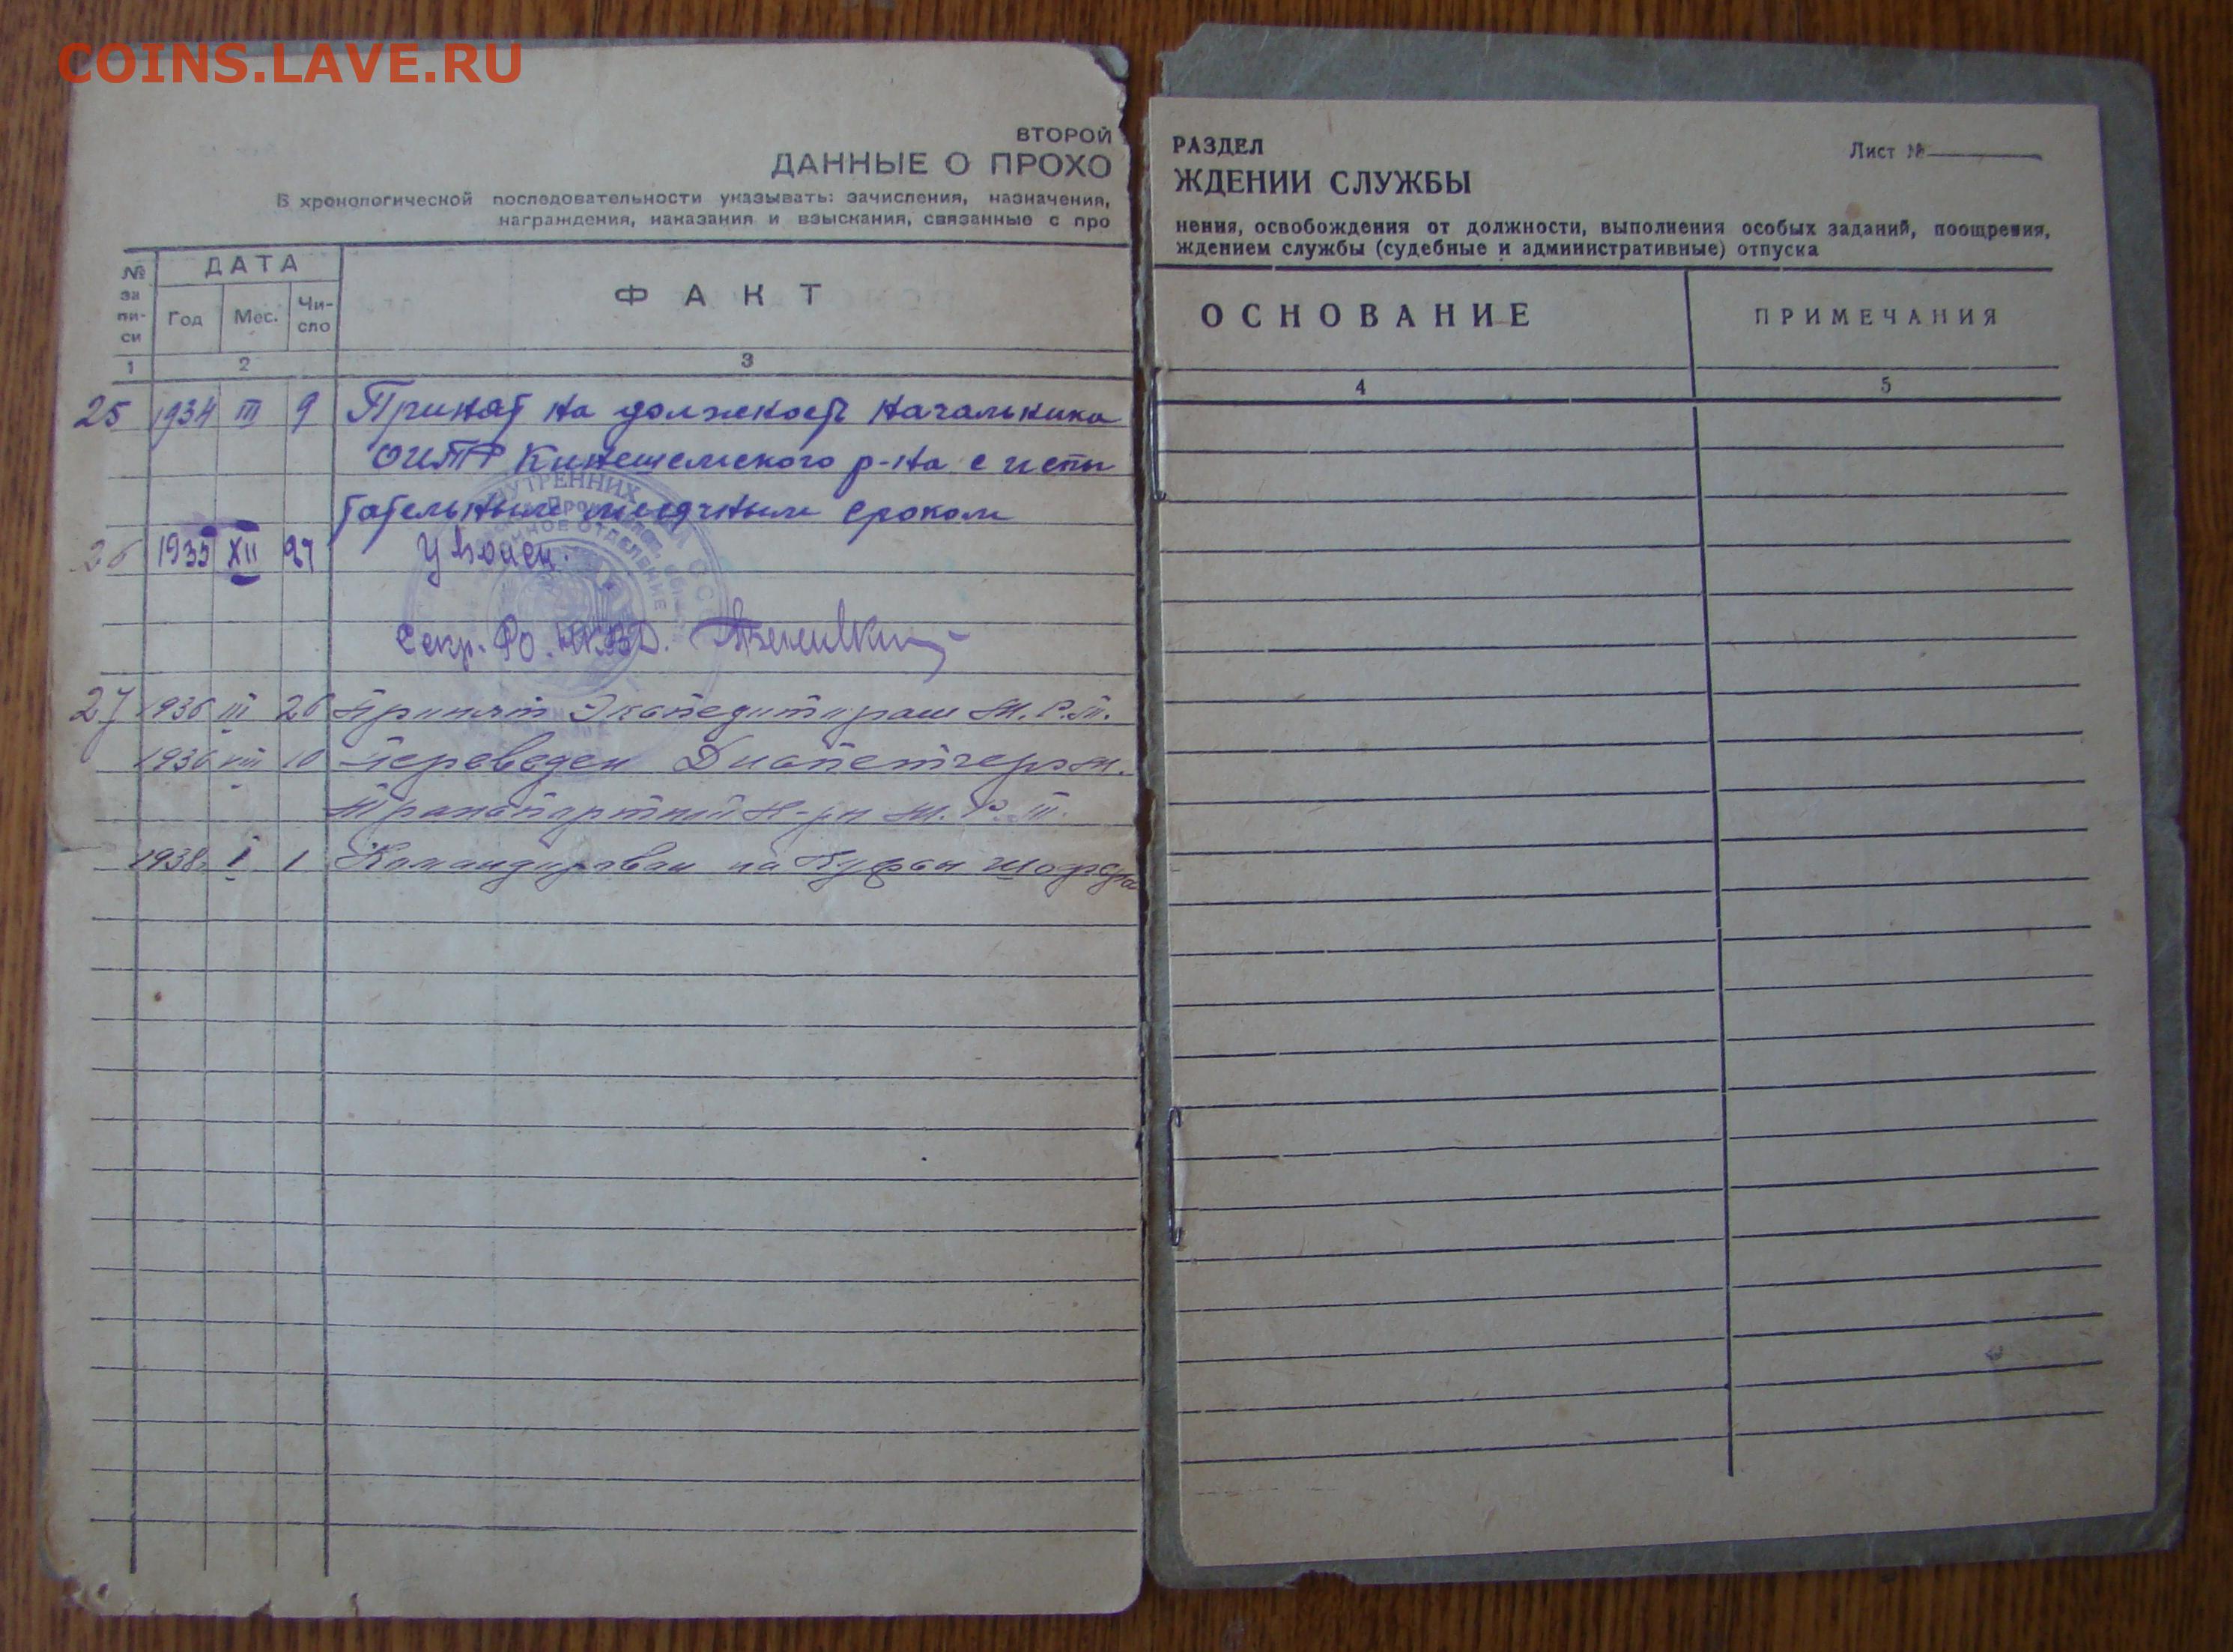 COINS.LAVE.RU
ВТОРОЙ
ДАННЫЕ О ПРОХО
В хронологической последовательности указывать: зачисления, назначения,
награждения, наказания и взыскания, связанные с про
№ за пи- си
ДАТА
Год
Мес.
Чи- сло
ФАКТ
1
2
3
25 1934 III 9 Принят на должность начальника
Кинешемского р-на с испы
тательным месячным сроком
26 1935 XII 27 Уволен.
Секр. РО. НКВД.
УТРЕННИХ
ОТДЕЛЕНИЕ
27 1936 III 26 Принят Экспедитором
1936 VIII 10 Переведен
1938г I 1 Командирован на Курсы
РАЗДЕЛ
Лист №
ЖДЕНИИ СЛУЖБЫ
нения, освобождения от должности, выполнения особых заданий, поощрения,
ждением службы (судебные и административные) отпуска
ОСНОВАНИЕ
ПРИМЕЧАНИЯ
4
5